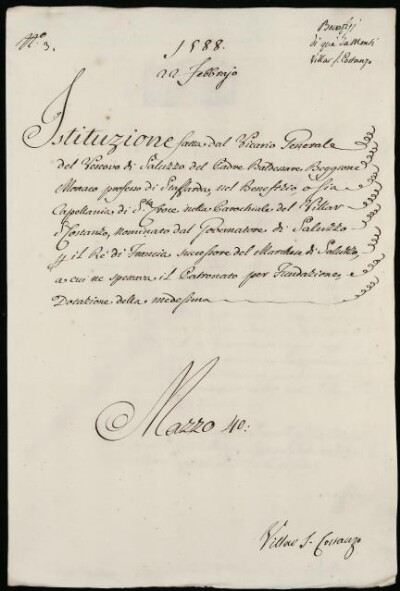 N.º 3.
1588.
22 Febbrajo
Benefizj
di quà da Monti
Villar S. Costanzo
Istituzione fatta dal Vicario Generale
del Vescovo di Saluzzo del Padre Baldassare Boggione
Monaco professo di Staffarda, nel Benefizio o sia
Capellania di S.ta Croce nella Parochiale del Villar
S. Costanzo, nominato dal Governatore di Saluzzo
p il Rè di Francia successore del Marchese di Saluzzo,
a cui ne spettava il Patronato per Fundazione, e
Dotazione della medesima
Mazzo 40:
Villar S. Costanzo